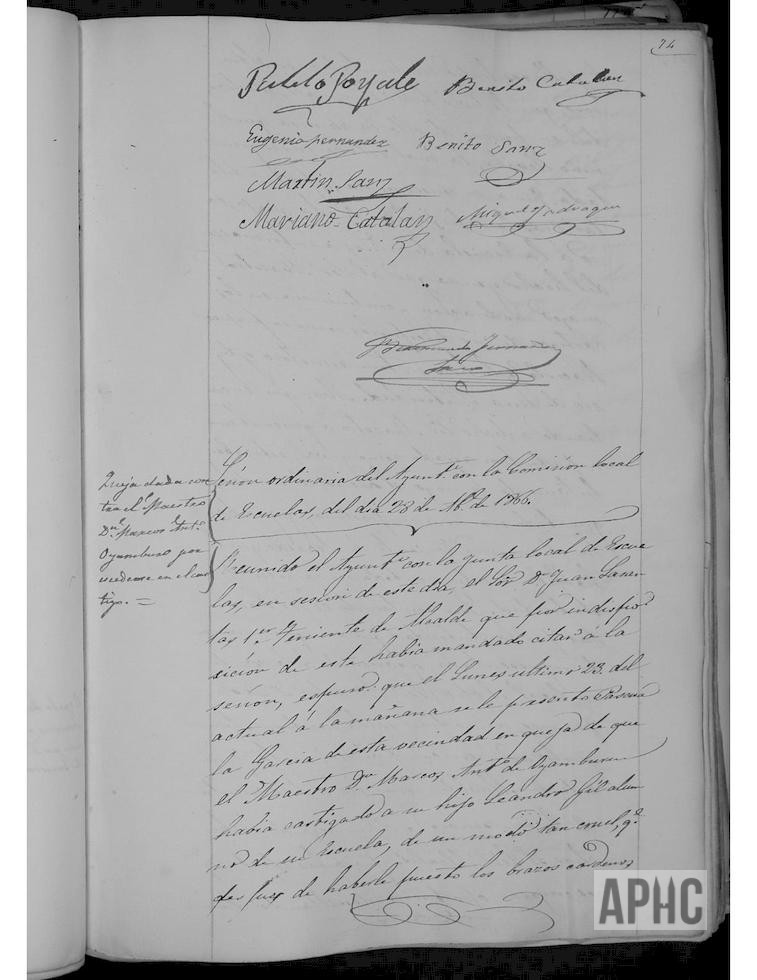 74
Pablo Poyale Benito Catalan
Eugenio Fernandez Benito Sanz
Martin Sanz
Mariano Catalan Miguel Jadraque
Fernandez
Queja dada con
tra el Maestro
Dn. Marcos Antº
Oyamburu por
escederse en el cas
tigo. =
Sesion ordinaria del Ayuntº con la Comision local
de Escuelas, del dia 28 de
Reunido el Ayuntº con la Junta local de Escue
las, en sesion de este dia, el Sor Dn Juan
tas 1er Teniente de Alcalde que por indispo
sicion de este habia mandado citar á la
sesion, espuso: que el Lunes ultimo 23. del
actual á la mañana se le presentó Pascua
la Garcia de esta vecindad en queja de que
el Maestro Dn Marcos Antº de Oyamburu
habia castigado a su hijo Leandro Gil alum
no de su Escuela, de un modo tan cruel, qe
despues de haberle puesto los brazos cardenos
APHC